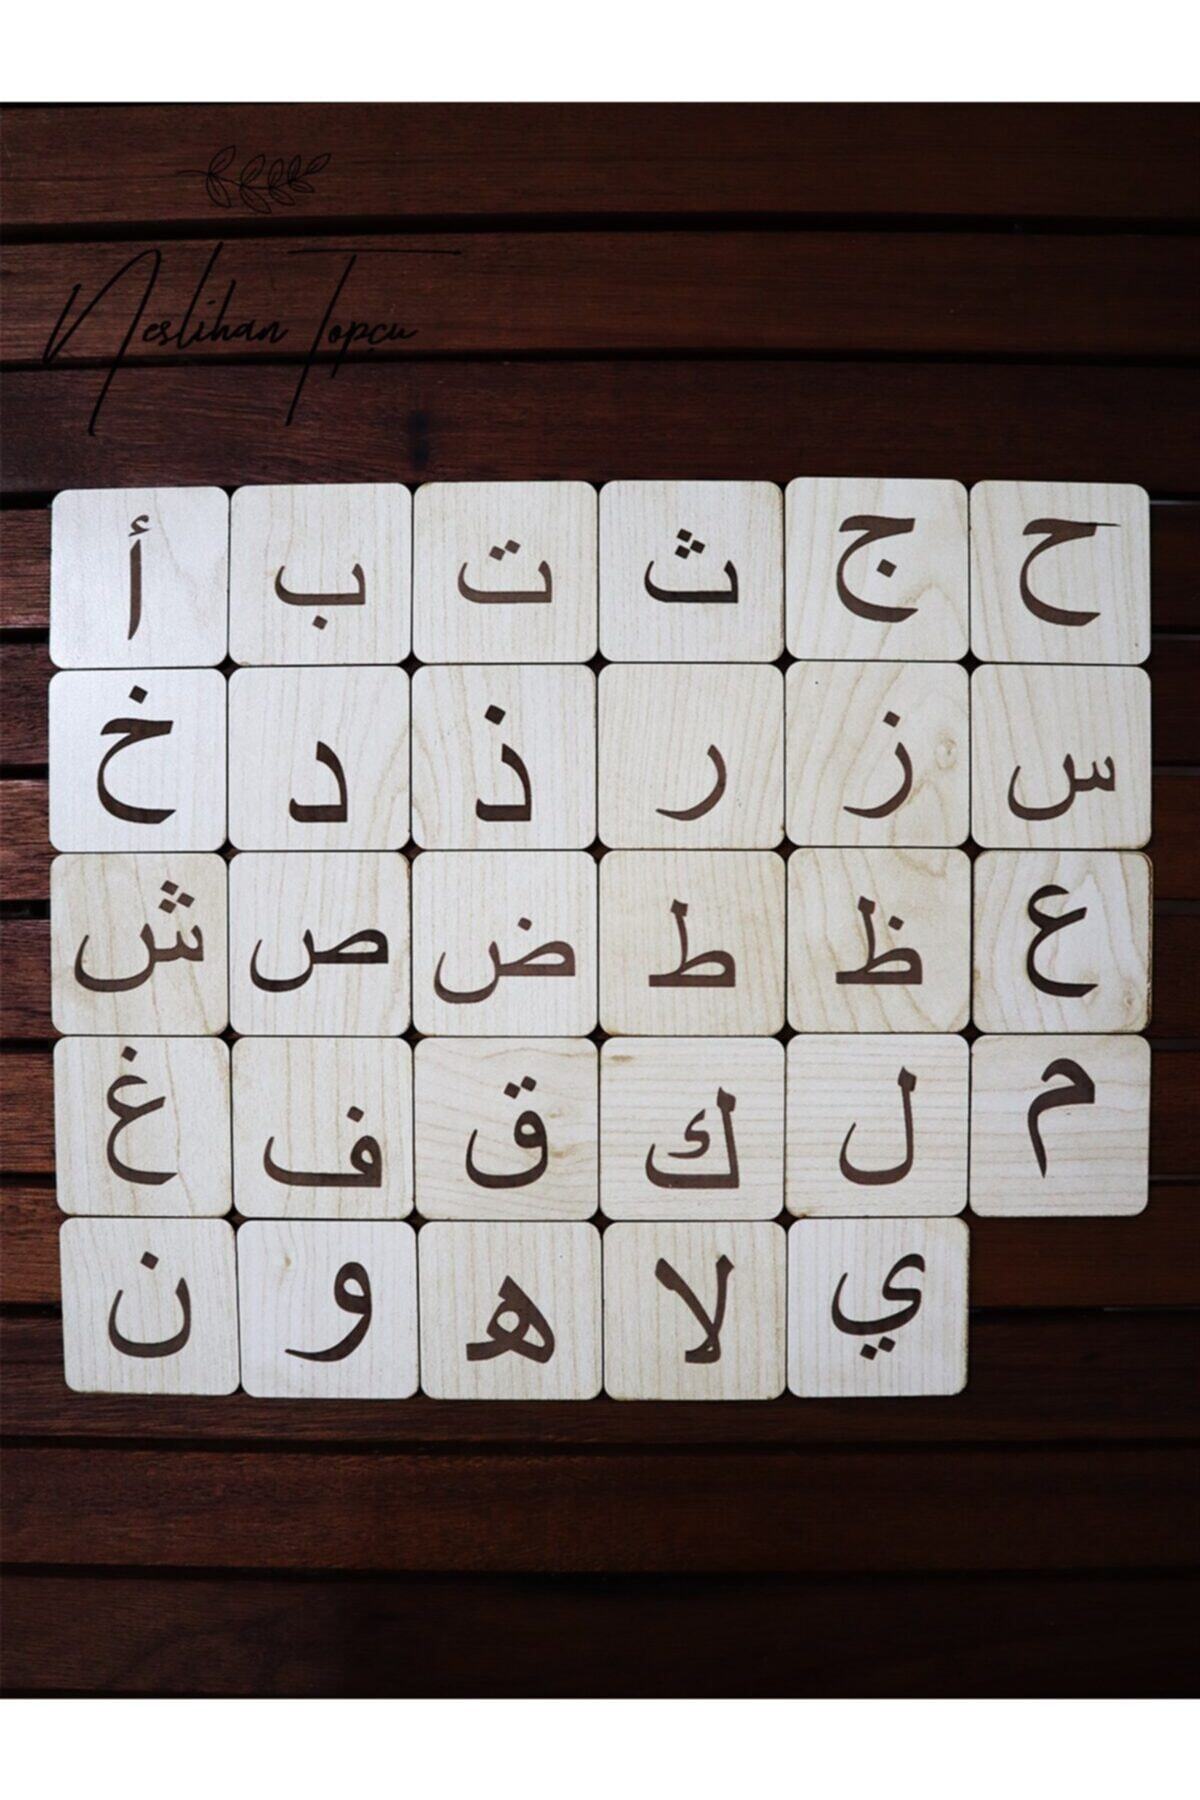 Neslihan Topçu
أ ب ت ث ج ح
خ د ذ ر ز س
ش ص ض ط ظ ع
غ ف ق ك ل م
ن و ه لا ي